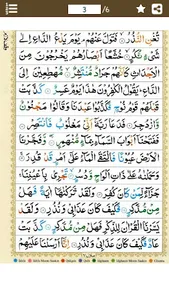 3 /6
تُغْنِ النُّذُرُ فَتَوَلَّ عَنْهُمْ يَوْمَ يَدْعُ الدَّاعِ اِلٰى
شَيْءٍ نُّكُرٍ خُشَّعًا اَبْصَارُهُمْ يَخْرُجُوْنَ مِنَ
الْاَجْدَاثِ كَاَنَّهُمْ جَرَادٌ مُّنْتَشِرٌ مُّهْطِعِيْنَ اِلَى
الدَّاعِ يَقُوْلُ الْكٰفِرُوْنَ هٰذَا يَوْمٌ عَسِرٌ كَذَّبَتْ
قَبْلَهُمْ قَوْمُ نُوْحٍ فَكَذَّبُوْا عَبْدَنَا وَقَالُوْا مَجْنُوْنٌ
وَّازْدُجِرَ فَدَعَا رَبَّهٗٓ اَنِّيْ مَغْلُوْبٌ فَانْتَصِرْ
فَفَتَحْنَآ اَبْوَابَ السَّمَآءِ بِمَآءٍ مُّنْهَمِرٍ وَّفَجَّرْنَا
الْاَرْضَ عُيُوْنًا فَالْتَقَى الْمَآءُ عَلٰٓى اَمْرٍ قَدْ قُدِرَ
وَحَمَلْنٰهُ عَلٰى ذَاتِ اَلْوَاحٍ وَّدُسُرٍ تَجْرِيْ بِاَعْيُنِنَا
جَزَآءً لِّمَنْ كَانَ كُفِرَ وَلَقَدْ تَّرَكْنٰهَآ اٰيَةً فَهَلْ
مِنْ مُّدَّكِرٍ فَكَيْفَ كَانَ عَذَابِيْ وَنُذُرِ وَلَقَدْ
يَسَّرْنَا الْقُرْاٰنَ لِلذِّكْرِ فَهَلْ مِنْ مُّدَّكِرٍ كَذَّبَتْ
عَادٌ فَكَيْفَ كَانَ عَذَابِيْ وَنُذُرِ اِنَّآ اَرْسَلْنَا عَلَيْهِمْ